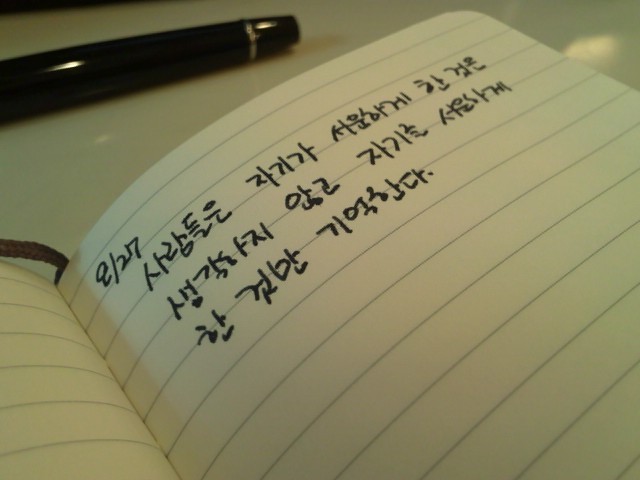 8/27
사람들은 자기가 서운하게 한 것은
생각하지 않고 자기를 서운하게
한 것만 기억한다.